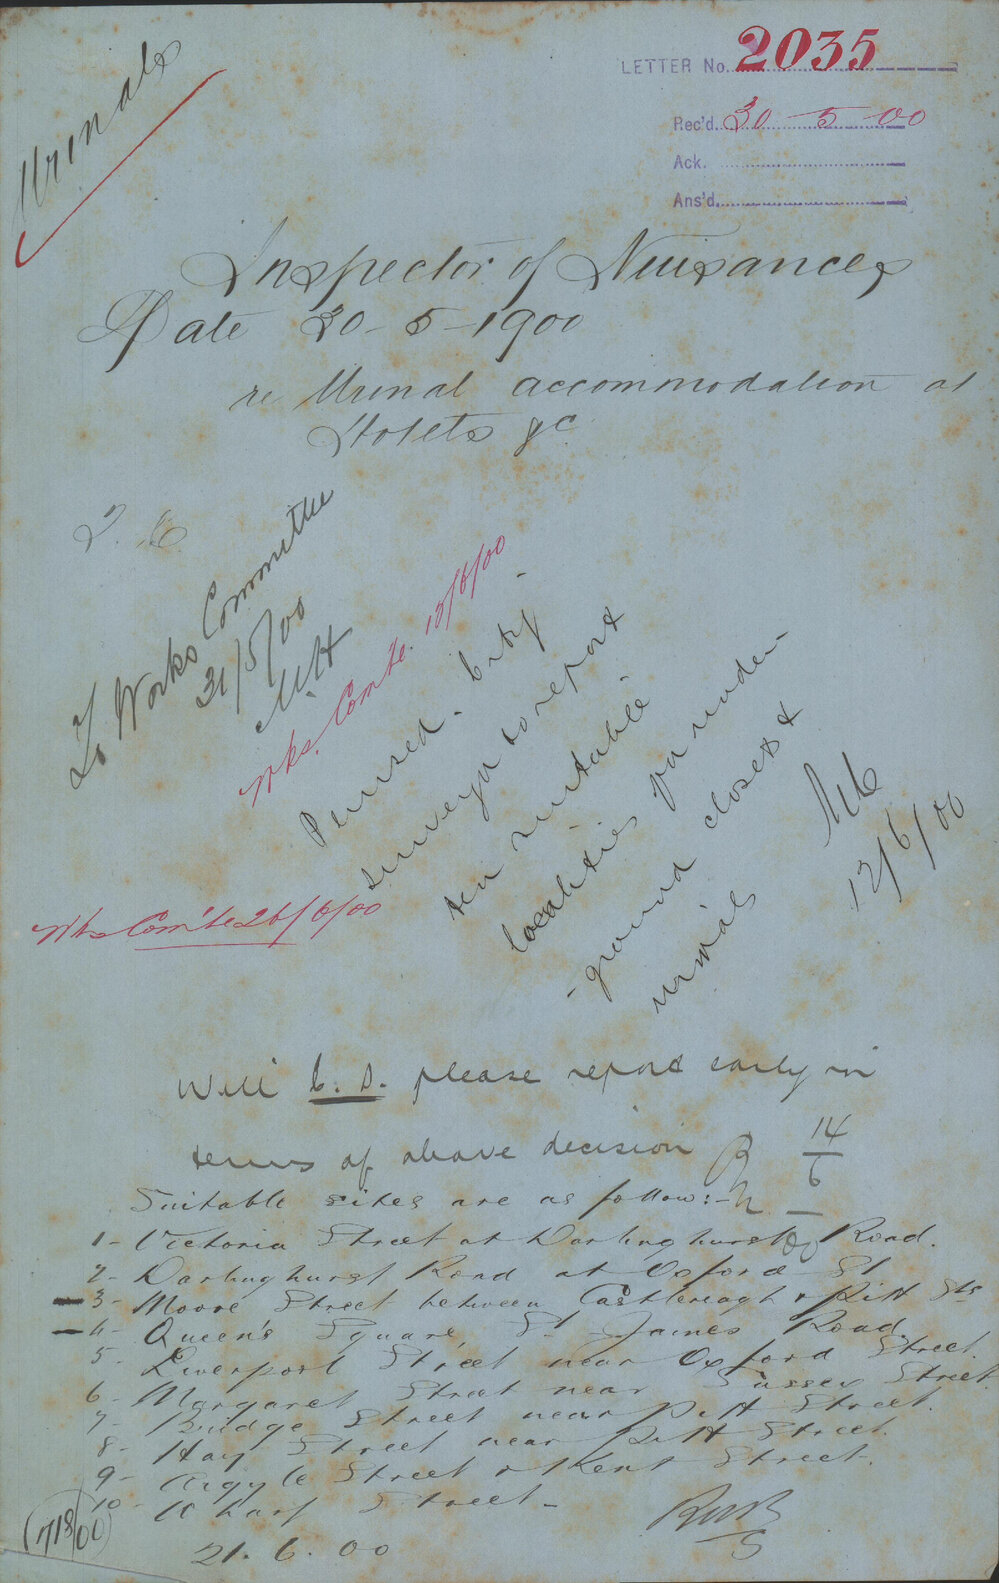 Urinals
LETTER No. 2035
Rec'd. 30-5-00
Ack.
Ans'd.
Inspector of Nuisances
Date 30-5-1900
re Urinal accommodation at
Hotels &c
T.C.
To Works Committee
31/5/00
Wks. Comte. 13/6/00
Perused. City
Surveyor to report
ten suitable
localities for under
-ground closets &
urinals
12/6/00
Wks Com'te 26/6/00
Will C. S. please report early in
terms of above decision
14
6
Suitable sites are as follow:-
1- Victoria Street at Darlinghurst Road.
2- Darlinghurst Road at Oxford St
3- Moore Street between Castlereagh & Pitt Sts
4- Queen's Square, St James Road.
5- Liverpool Street near Oxford Street.
6- Margaret Street near Sussex Street.
7- Bridge Street near Pitt Street.
8- Hay Street near Pitt Street.
9- Argyle Street & Kent Street.
10- Wharf Street -
21. 6. 00
(718/00)